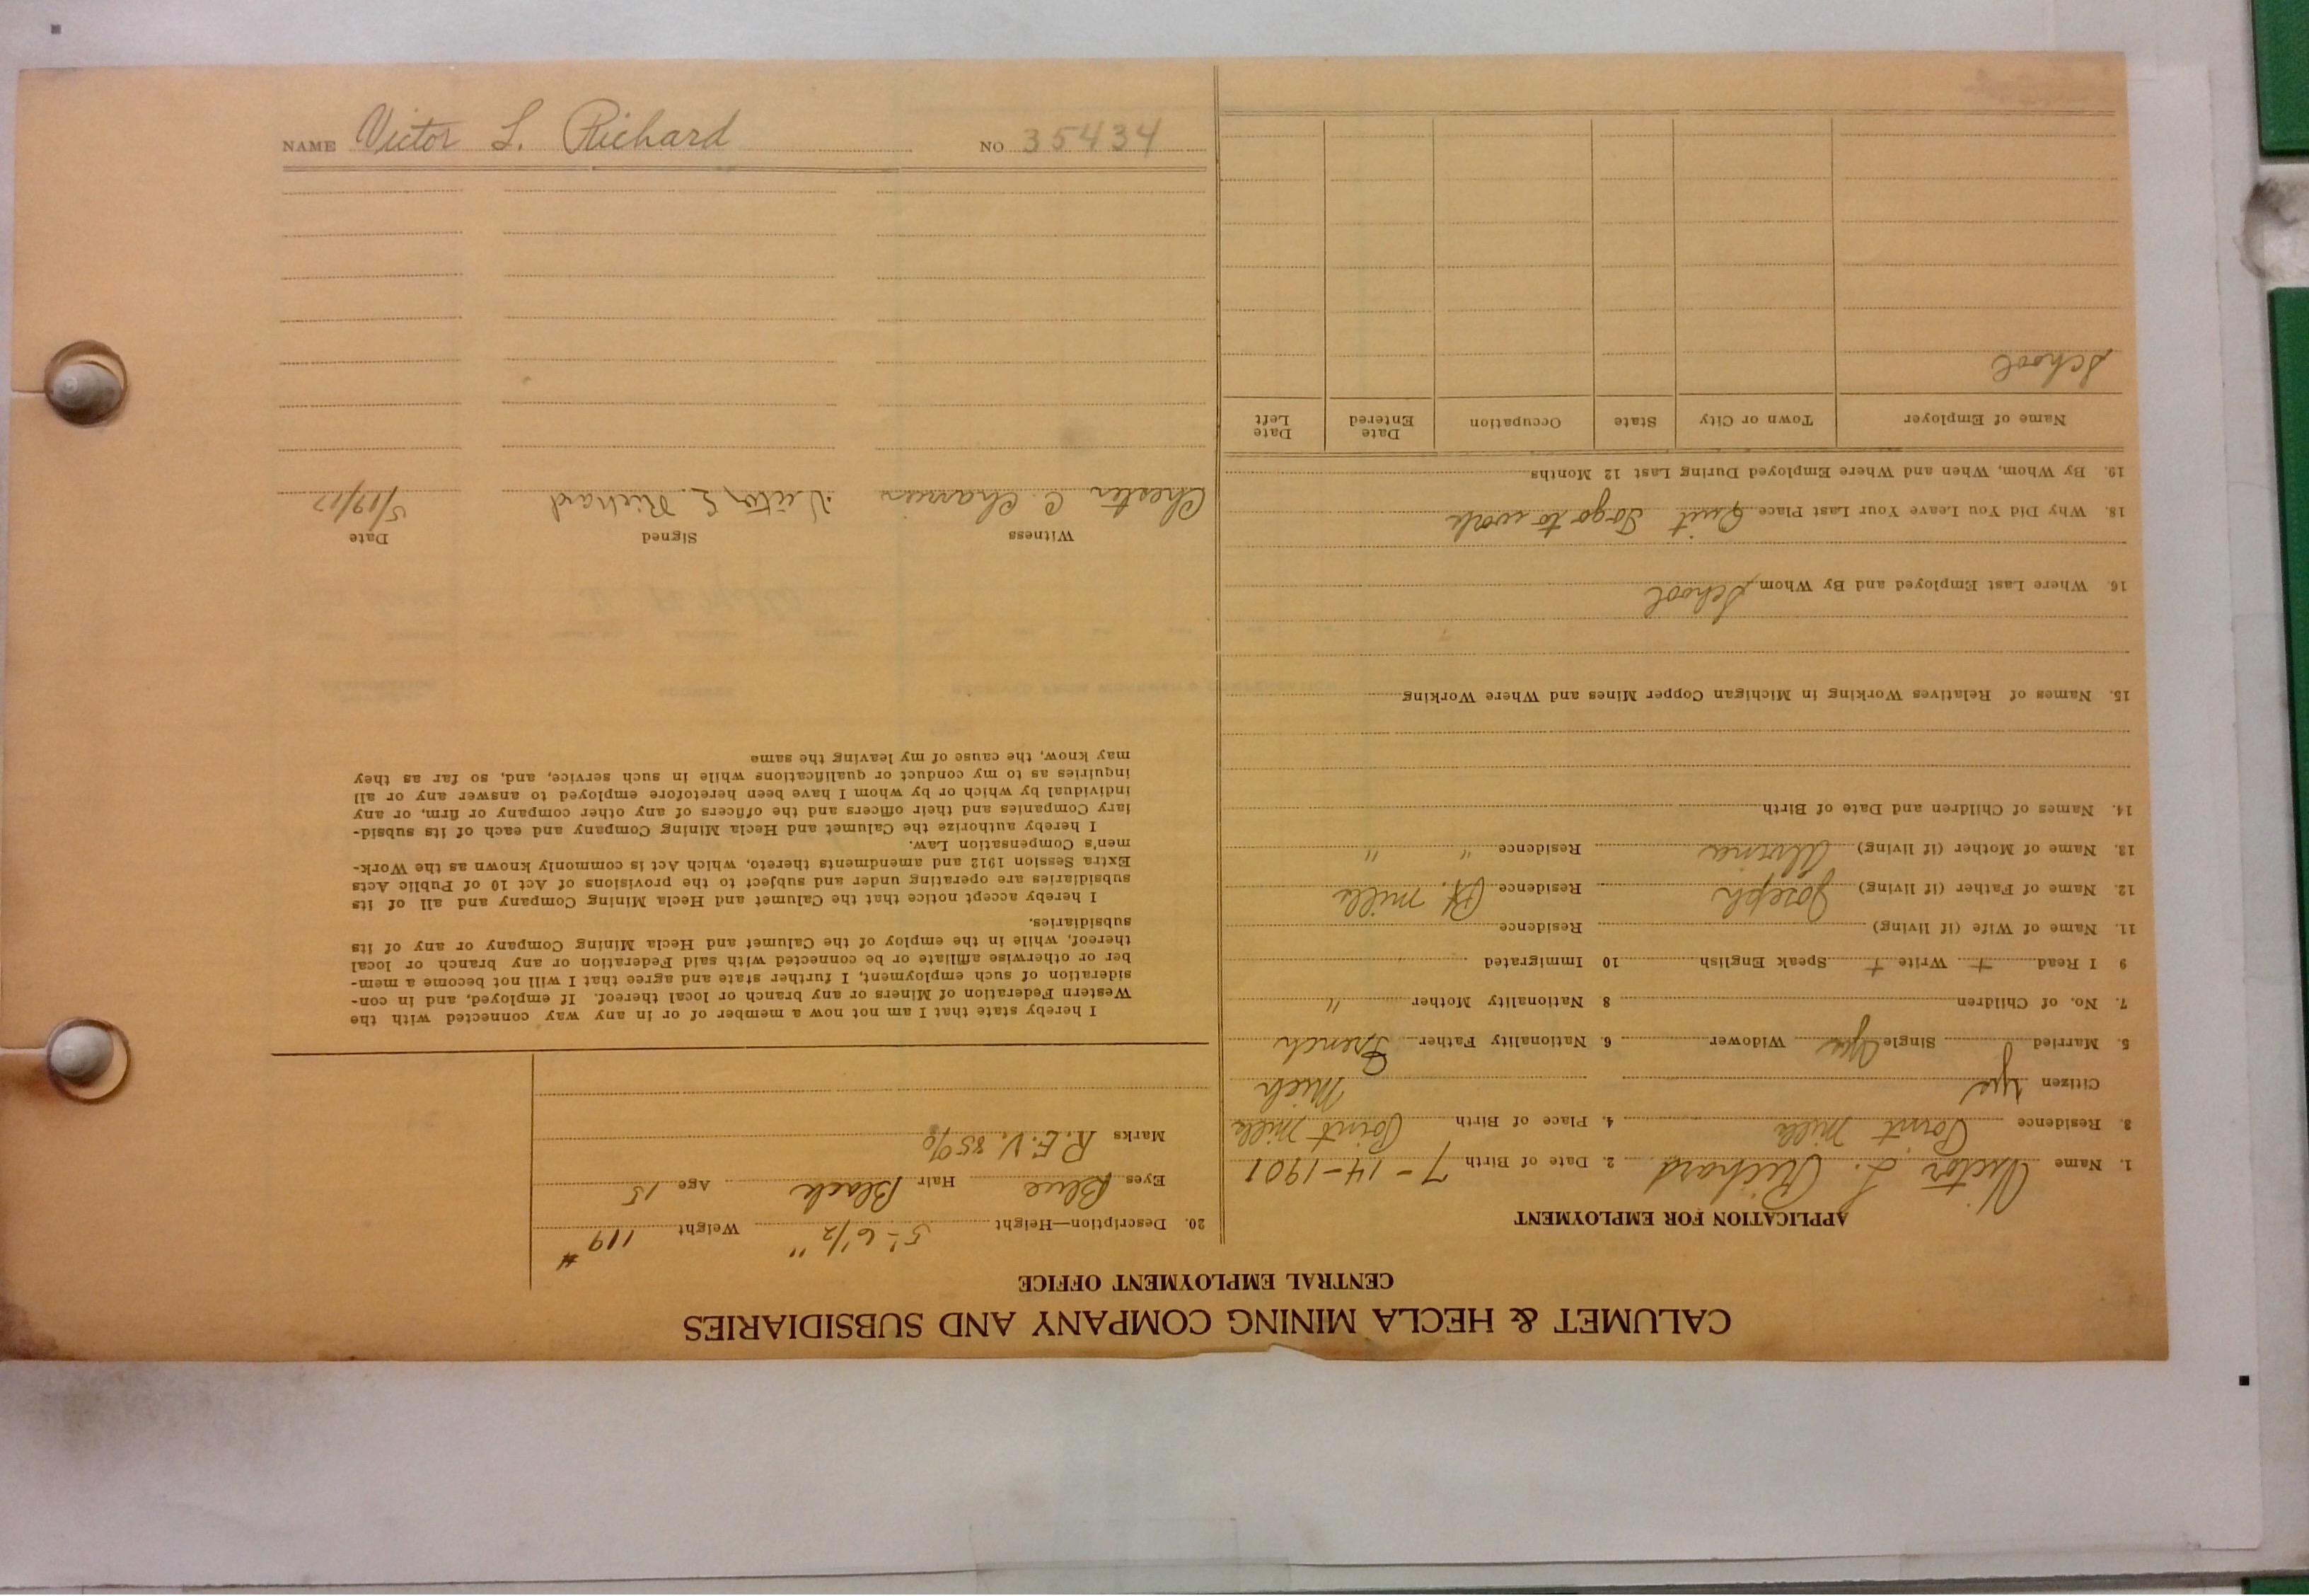 CALUMET & HECLA MINING COMPANY AND SUBSIDIARIES
CENTRAL EMPLOYMENT OFFICE
APPLICATION FOR EMPLOYMENT
1. Name Victor L. Richard 2. Date of Birth 7-14-1901
3. Residence Point Mills 4. Place of Birth Point Mills
Citizen Yes Mich
5. Married Single Yes Widower 6. Nationality Father French
7. No. of Children 8 Nationality Mother "
9 I Read + Write + Speak English 10 Immigrated
11. Name of Wife (if living) Residence
12. Name of Father (if living) Joseph Residence Pt. Mills
13. Name of Mother (if living) Residence " "
14. Names of Children and Date of Birth
15. Names of Relatives Working in Michigan Copper Mines and Where Working
16. Where Last Employed and By Whom School
18. Why Did You Leave Your Last Place Quit To go to work
19. By Whom, When and Where Employed During Last 12 Months
Name of Employer Town or City State Occupation Date Entered Date Left
School
20. Description—Height 5'-6 1/2" Weight 119 #
Eyes Blue Hair Black Age 15
Marks R.E.V. 85%
I hereby state that I am not now a member of or in any way connected with the
Western Federation of Miners or any branch or local thereof. If employed, and in con-
sideration of such employment, I further state and agree that I will not become a mem-
ber or otherwise affiliate or be connected with said Federation or any branch or local
thereof, while in the employ of the Calumet and Hecla Mining Company or any of its
subsidiaries.
I hereby accept notice that the Calumet and Hecla Mining Company and all of its
subsidiaries are operating under and subject to the provisions of Act 10 of Public Acts
Extra Session 1912 and amendments thereto, which Act is commonly known as the Work-
men's Compensation Law.
I hereby authorize the Calumet and Hecla Mining Company and each of its subsid-
iary Companies and their officers and the officers of any other company or firm, or any
individual by which or by whom I have been heretofore employed to answer any or all
inquiries as to my conduct or qualifications while in such service, and, so far as they
may know, the cause of my leaving the same
Witness Signed Date
Chester C. Victor L. Richard 5/19/17
NAME Victor L. Richard NO 35434